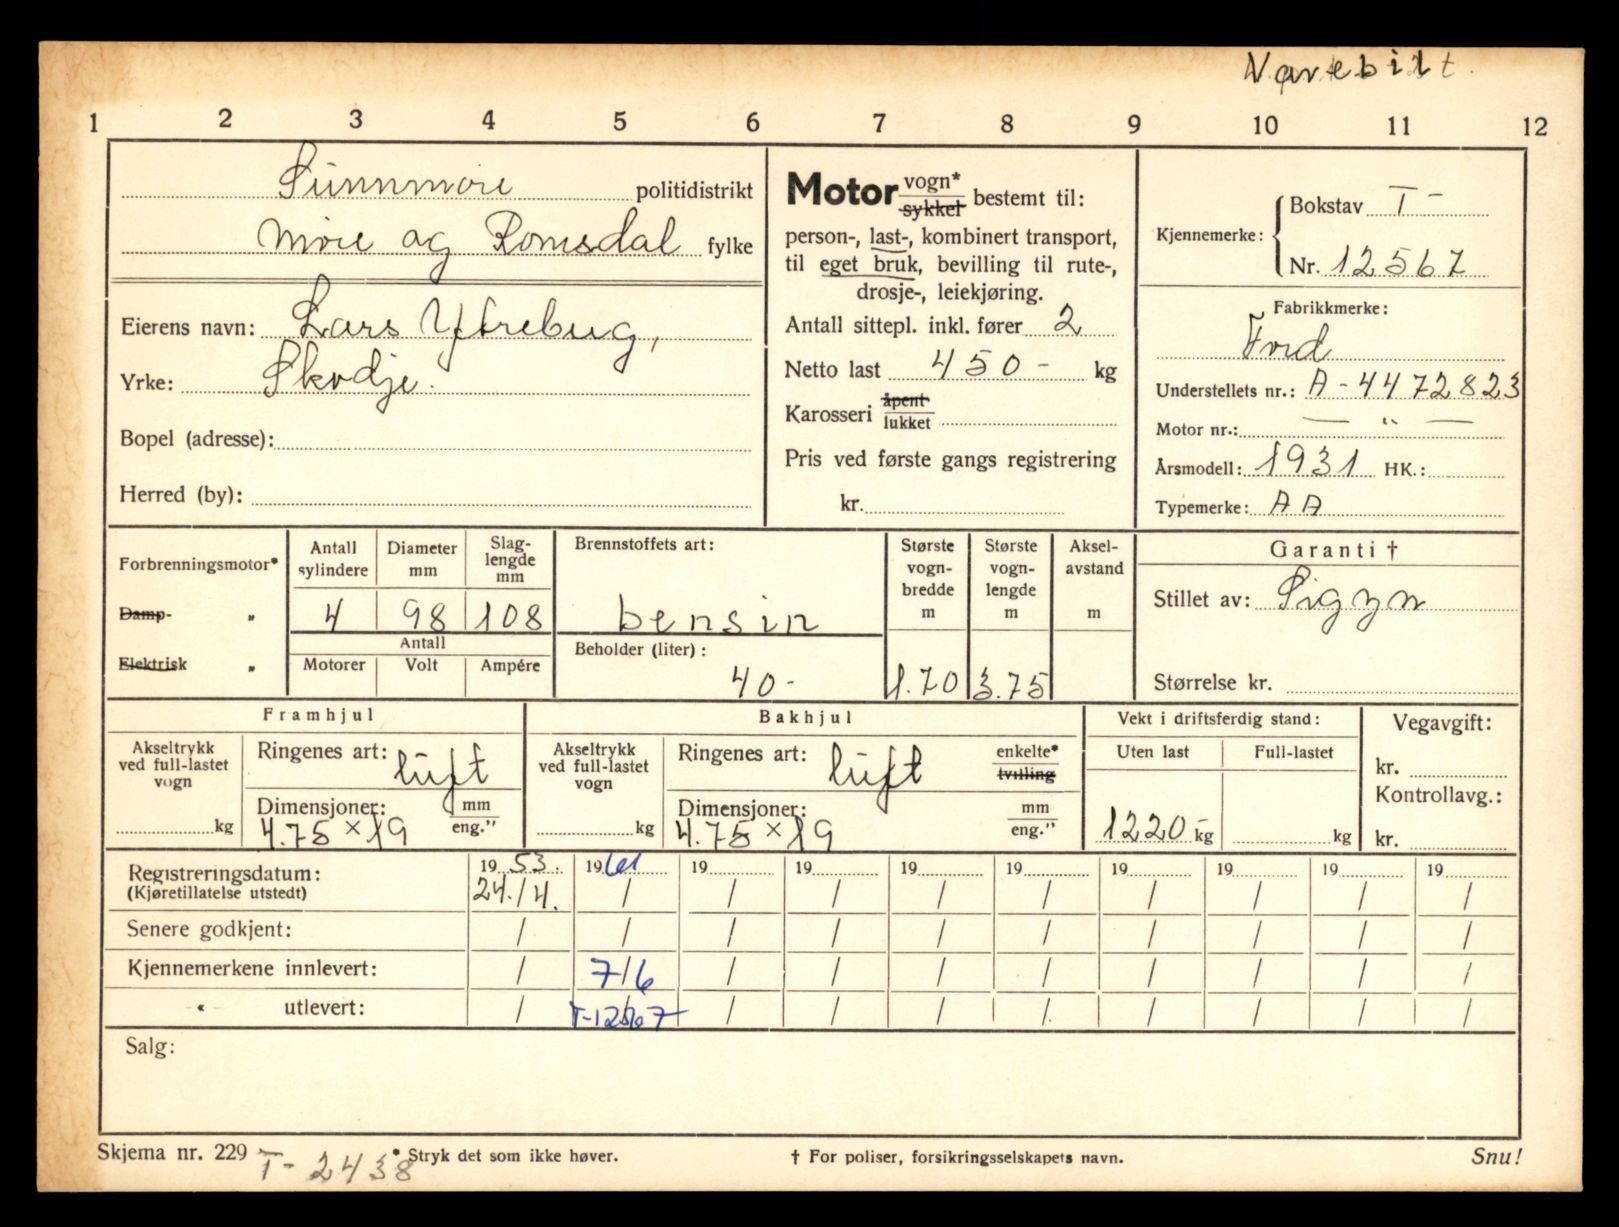 Varebil t.
1 2 3 4 5 6 7 8 9 10 11 12
Sunnmøre politidistrikt
Møre og Romsdal fylke
Eierens navn: Lars Yttrebug,
Yrke: Skodje.
Bopel (adresse):
Herred (by):
Motor vogn* sykkel bestemt til:
person-, last-, kombinert transport,
til eget bruk, bevilling til rute-,
drosje-, leiekjøring.
Antall sittepl. inkl. fører 2
Netto last 450- kg
Karosseri åpent lukket
Pris ved første gangs registrering
kr.
Kjennemerke: Bokstav T-
Nr. 12567
Fabrikkmerke:
Ford
Understellets nr.: A-4472823
Motor nr.: — " —
Årsmodell: 1931 HK.:
Typemerke: AA
Forbrenningsmotor*
Damp- "
Elektrisk "
Antall sylindere Diameter mm Slag-lengde mm
4 98 108
Antall
Motorer Volt Ampére
Brennstoffets art:
bensin
Beholder (liter):
40-
Største vogn-bredde m Største vogn-lengde m Aksel-avstand m
1.70 3.75
Garanti †
Stillet av: Sigyn
Størrelse kr.
Framhjul
Akseltrykk ved full-lastet vogn
kg
Ringenes art: luft
Dimensjoner: mm eng."
4.75 × 19
Bakhjul
Akseltrykk ved full-lastet vogn
kg
Ringenes art: luft enkelte* tvilling
Dimensjoner: mm eng."
4.75 × 19
Vekt i driftsferdig stand:
Uten last Full-lastet
1220- kg kg
Vegavgift:
kr.
Kontrollavg.:
kr.
Registreringsdatum: 19 53. 19 61 19 19 19 19 19 19 19 19
(Kjøretillatelse utstedt) 24./4. / / / / / / / / /
Senere godkjent: / / / / / / / / / /
Kjennemerkene innlevert: / 7/6 / / / / / / / /
" utlevert: / T-12567 / / / / / / / /
Salg:
Skjema nr. 229 T-2438 * Stryk det som ikke høver. † For poliser, forsikringsselskapets navn. Snu!